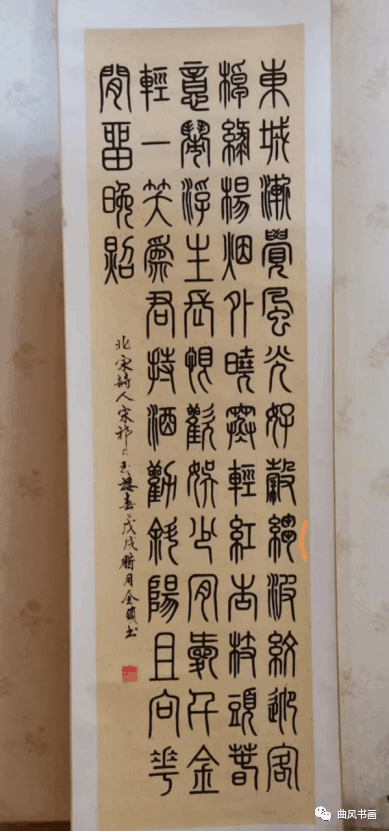 東城漸覺風光好縠縐波紋迎客
棹綠楊烟外曉寒輕紅杏枝頭春
意鬧浮生長恨歡娛少肯愛千金
輕一笑為君持酒勸斜陽且向花
間留晚照
北宋詩人宋祁玉樓春戊戌腊月金書
曲风书画